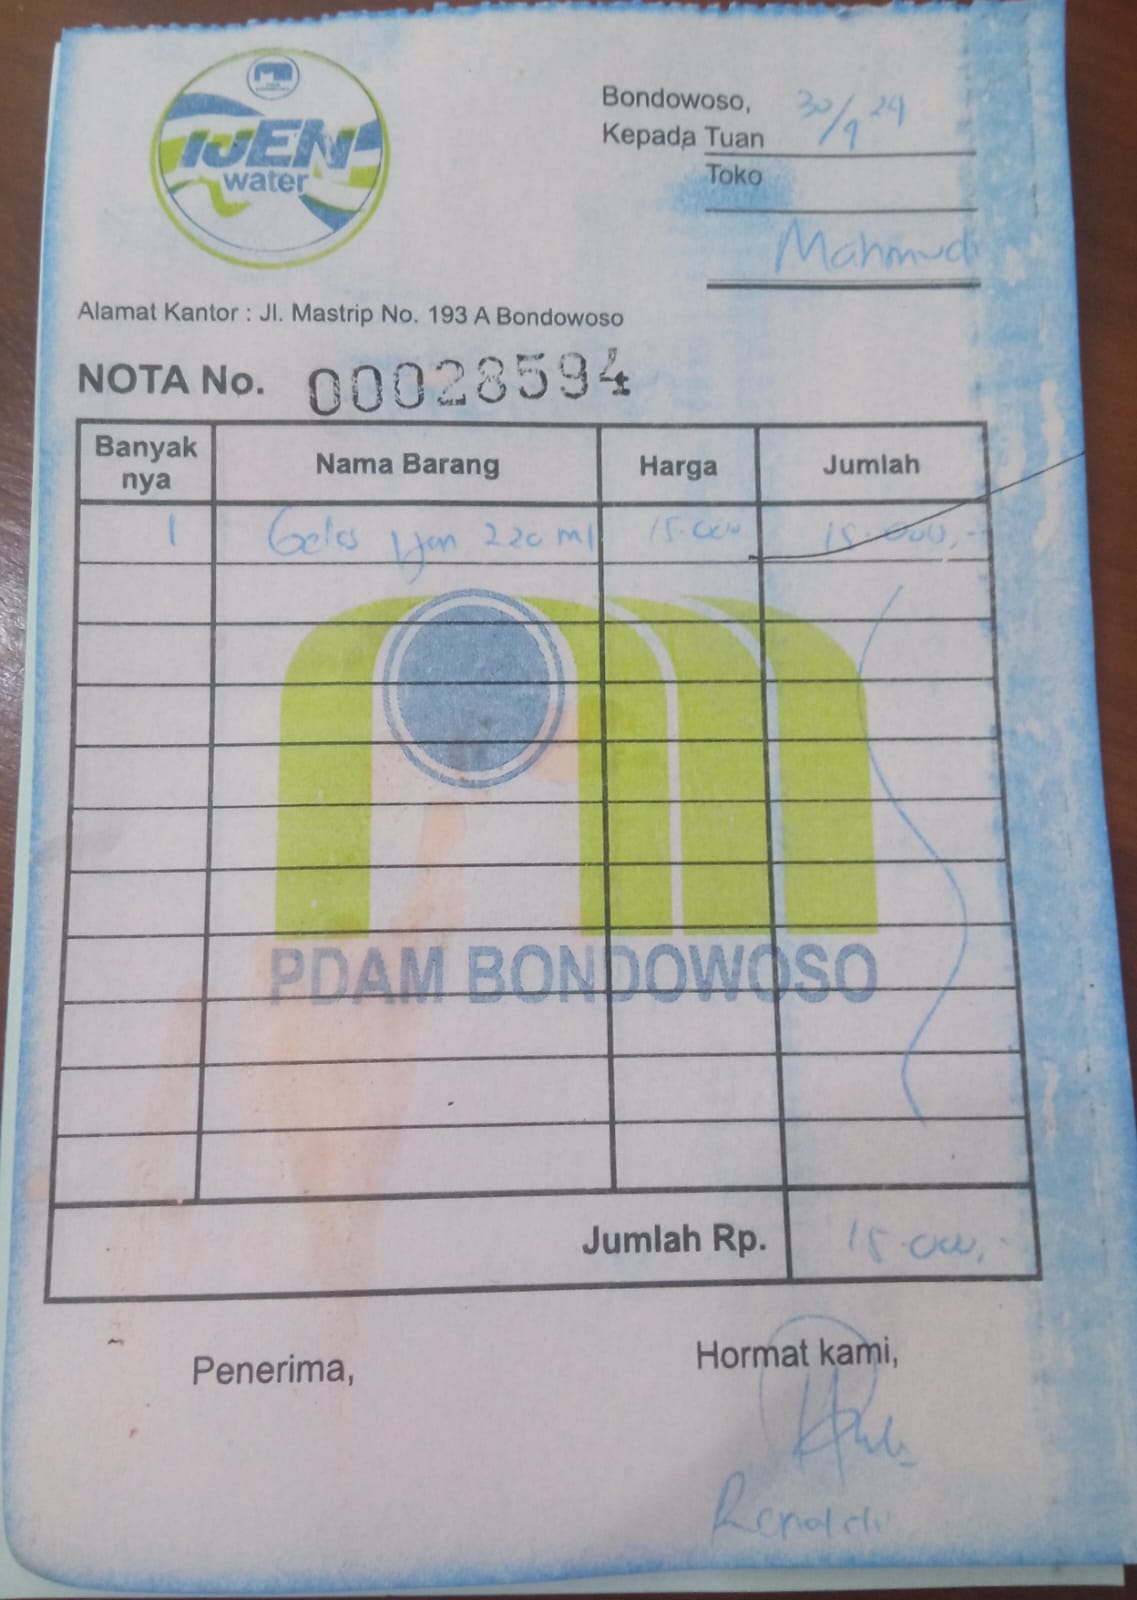 IJEN
water
Bondowoso, 30/9 24
Kepada Tuan
Toko
Mahmudi
Alamat Kantor : Jl. Mastrip No. 193 A Bondowoso
NOTA No. 00028594
Banyak nya Nama Barang Harga Jumlah
1 Gelas Ijen 220 ml 15.000 15.000,-
PDAM BONDOWOSO
Jumlah Rp. 15.000,-
Penerima, Hormat kami,
Renaldi